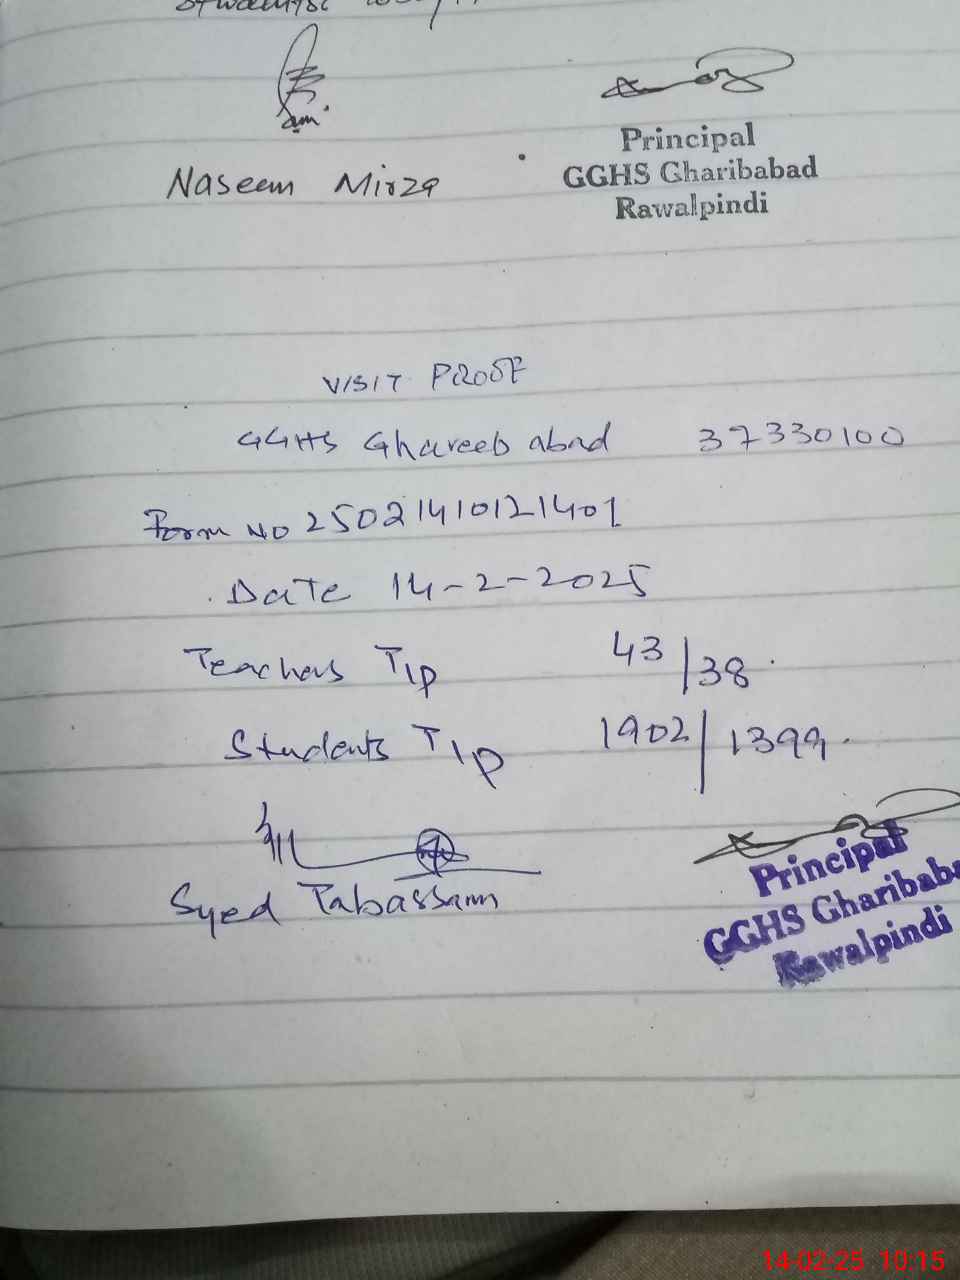 Naseem Mirza
Principal
GGHS Gharibabad
Rawalpindi
VISIT PROOF
GGHS Ghareeb abad 37330100
Form NO 25021410121401
Date 14-2-2025
Teachers T/P 43/38
Students T/P 1902/1399
Syed Tabassam
Principal
GGHS Gharibaba
Rawalpindi
14-02-25 10:15